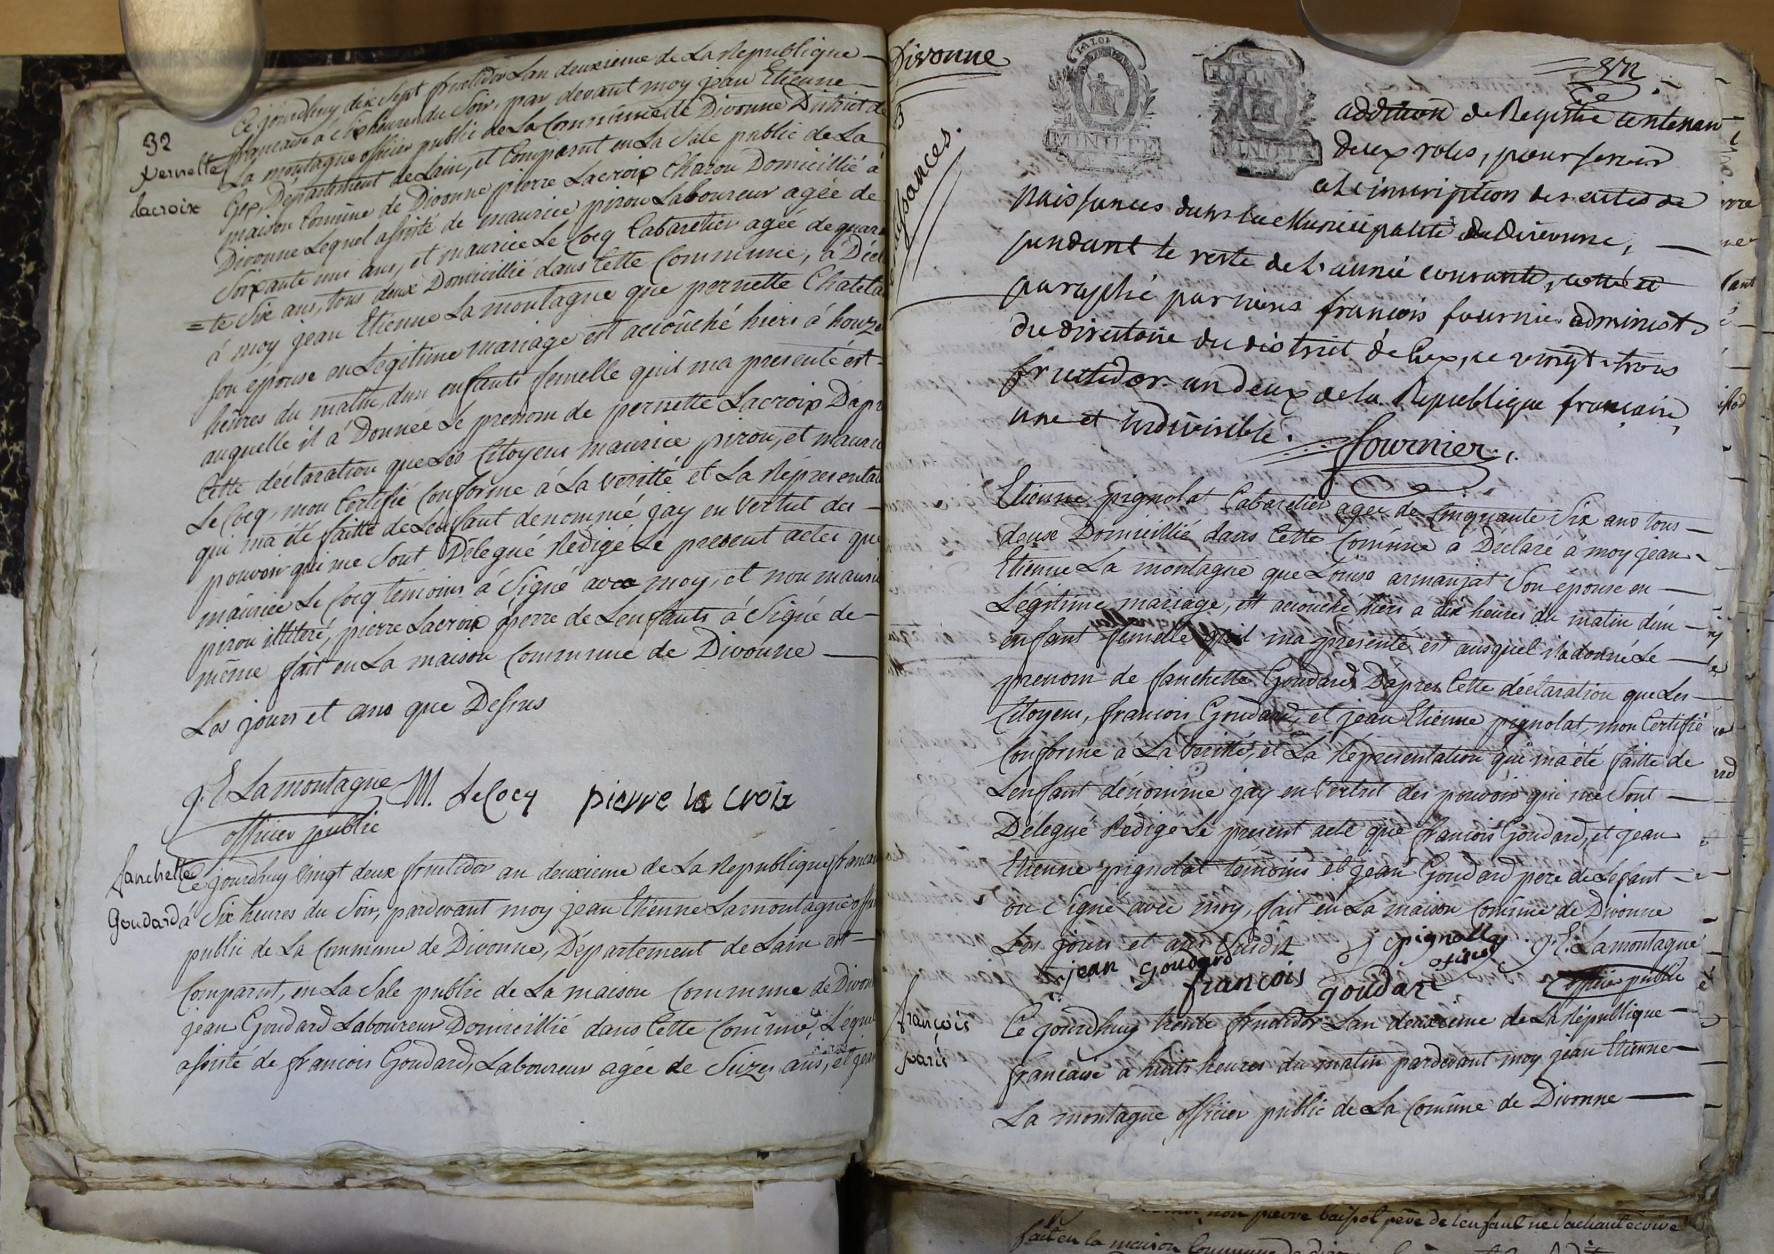 32
pernette
Lacroix
Ce jourdhuy dix Sept fructidor Lan deuxieme de La Republique
francaise a Six heures du Soir, par devant moy jean Etienne
La montagne officier public de La Commune de Divonne District de
Gex, Departement de Lain, et Comparut en La Sale public de La
maison Comune de Divonne pierre Lacroix Charon Domicillié à
Divonne Lequel assisté de maurice pirou Laboureur agée de
Soixante ans, et maurice Le Cocq Cabaretier agée de quaran
=te Six ans, tous deux Domicillié dans Cette Commune, à Décl
à moy jean Etienne La montagne que pernette Chatela
Son épouse en Légitime mariage est accouché hiers à houze
heures du matin, dun enfants femelle quil ma presenté est
auquelle il à Donnée Le prenom de pernette Lacroix Dapr
Cette déclaration que Les Citoyens maurice pirou, et mauric
Le Cocq, mon Certifié Conforme à La veritté et La Réprésentati
qui ma été faitte de Lenfant denommé jay en Vertut des
pouvoir qui me Sont Délegué Redigé Le present actes que
maurice Le Cocq temoins à Signé avec moy, et non mauric
pirou illiteré, pierre Lacroix perre de Lenfants à Signé de
même fait en La maison Commune de Divonne
Les jours et ans que Dessus
J. E. Lamontagne M. LeCocq pierre la croix
officier public
fanchette
Goudard
Ce jourdhuy Vingt deux fructidor an deuxieme de La Republique francai
à Six heures du Soir, pardevant moy jean Etienne Lamontagne offi
public de La Commune de Divonne, Département de Lain est
Comparut, en La Sale public de La maison Commune de Divonn
jean Goudard Laboureur Domicillié dans Cette Comune, Lequel
assisté de francois Goudard, Laboureur agée de Seize ans, et jean
Divonne
Naissances.
addition de Registre contenan
deux roles, pour servir
a l'inscription des actes de
naissances dans la Municipalité de Divonne,
pendant le reste de l'année courante, cotté et
paraphé par nous françois fournier administ
du directoire du district de Gex, ce vingt-trois
fructidor an deux de la République française
une et indivisible.
fournier
Etienne pignolat Cabaretier agée de Cinquante Six ans tous
deux Domicillié dans Cette Comune à Déclaré à moy jean
Etienne La montagne que Louise armanjat Son épouse en
Legitime mariage, est accouché hiers a dix heures du matin dun
enfant femelle quil ma presenté est ausquel il a donné Le
prenom de fanchette Goudard Dapres Cette déclaration que Les
Citoyens, francois Goudard, et jean Etienne pignolat, mon Certiffié
Conforme a La Veritté, et La Répresentation qui ma été faitte de
Lenfant dénommé jay en Vertut des pouvoir qui me Sont
Délegué Redigé Le present acte que francois Goudard, et jean
Etienne pignolat temoins et jean Goudard pere de Lefant
on Signé avec moy, fait en La maison Comune de Divonne
Les jours et ans Susdit J E pignollat J. E. Lamontagne
jean Goudard officier public
francois goudar
françois
paris
Ce jourdhuy trente fructidor Lan deuxieme de La République
francaise à huits heures du matin pardevant moy jean Etienne
La montagne officier public de La Comune de Divonne
non pierre baissot père de lenfant ne sachant écrire
fait en la maison Commune